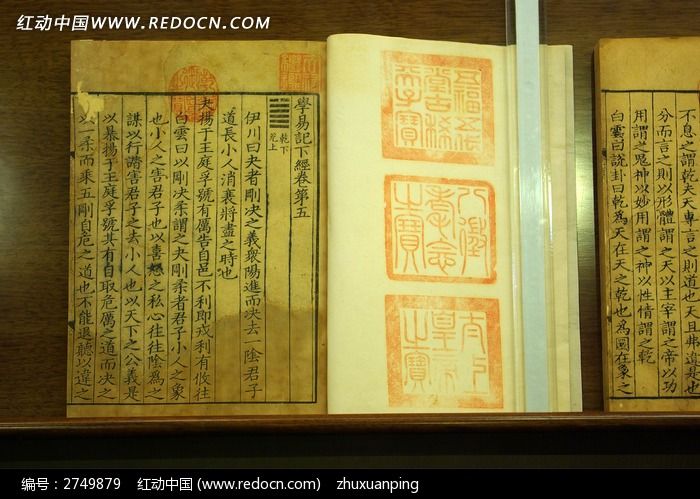 红动中国 WWW.REDOCN.COM
學易記下經卷第五
乾下
兌上
伊川曰夬者剛决之義衆陽進而决去一陰君子
道長小人消衰將盡之時也
夬揚于王庭孚號有厲告自邑不利即戎利有攸往
白雲曰以剛决柔謂之夬剛柔者君子小人之象
也小人之害君子也以喜怒之私心往往陰為之
謀以行譖害君子之去小人也以天下之公義是
以暴揚于王庭孚號其有自取危厲之道而决之
以一柔而乗五剛自危之道也不能退聽以違之
五福五代堂古稀天子寶
八徴耄念之寶
太上皇帝之寶
不息之謂乾天專言之則道也天且弗違是也
分而言之則以形體謂之天以主宰謂之帝以功
用謂之鬼神以妙用謂之神以性情謂之乾
白雲曰說卦曰乾為天在天之乾也為圜在象之
编号：2749879 红动中国 (www.redocn.com) zhuxuanping